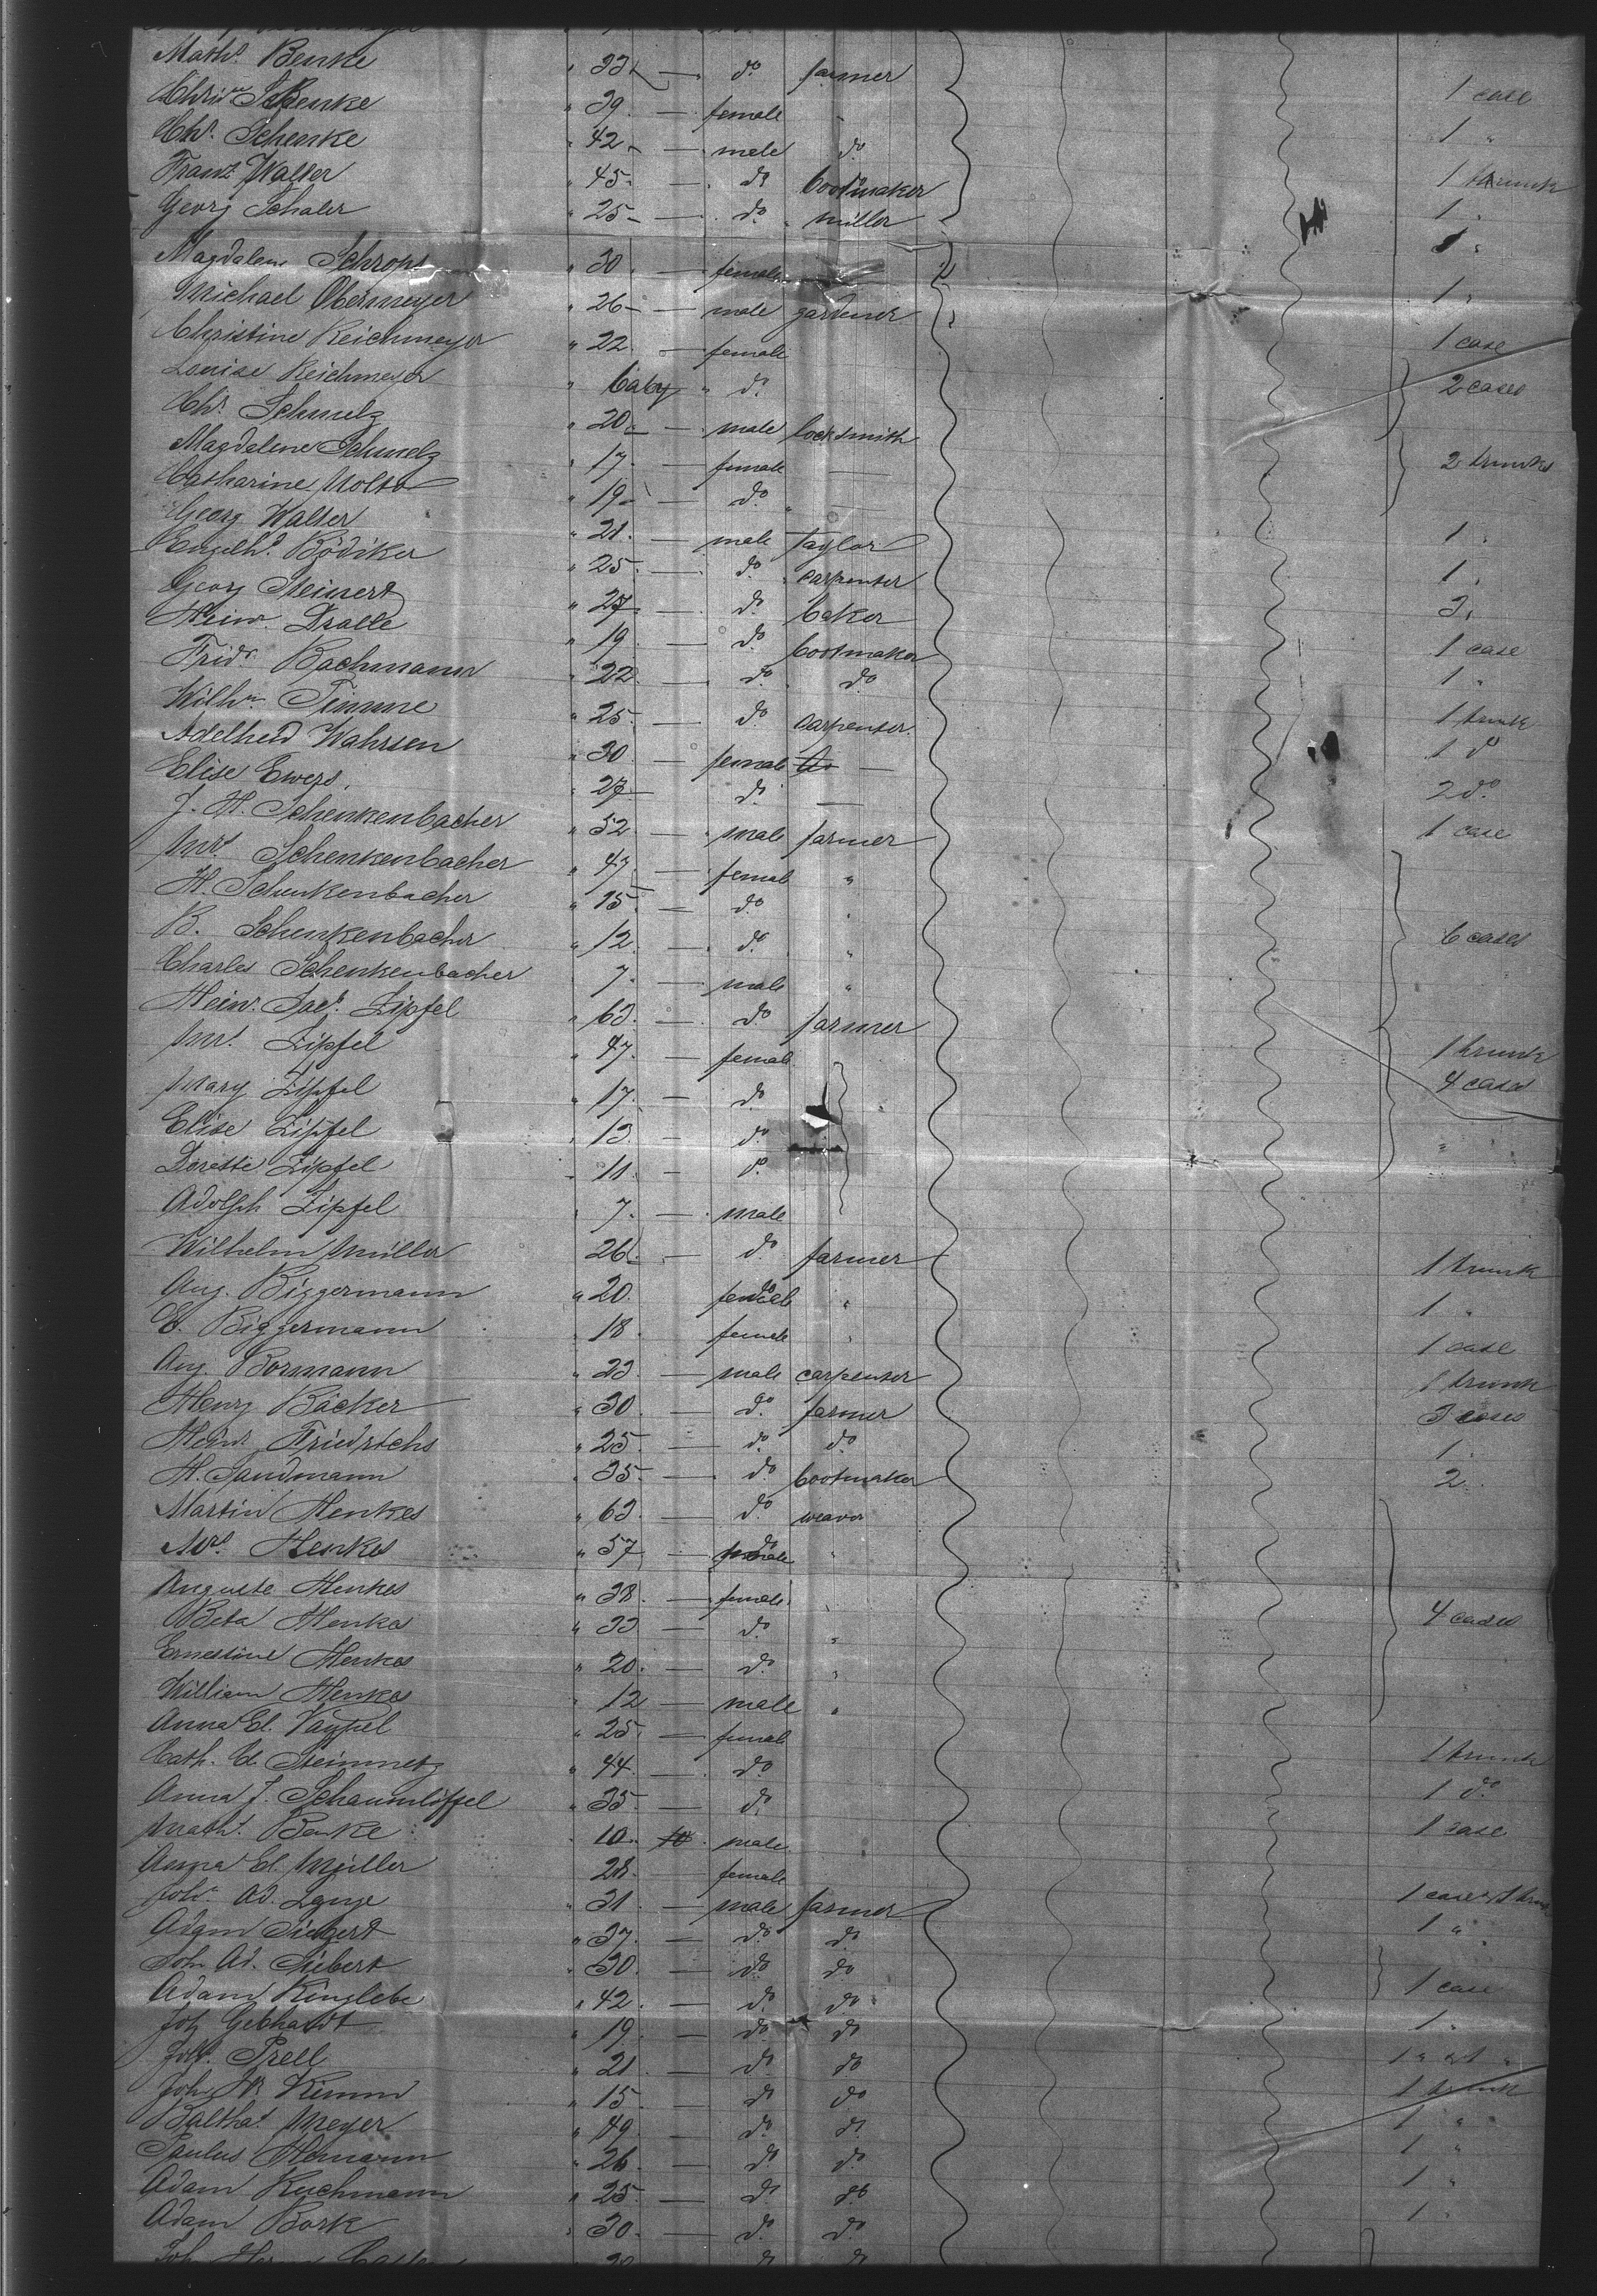 Math. Benke " 33 — do farmer 1 case
Schenke " 39 — female 1 "
Chr. Schenke " 42 — male do 1 trunk
Franz Walter " 45 — do bootmaker 1 "
Georg Schaler " 25 — do miller 1 "
Magdalene Schrops " 30 — female 1 "
Michael Obermeyer " 26 — male gardener
Christine Reichmeyer " 22 — female 1 case
Louise Reichmeyer " baby " do 2 cases
Chr. Schmelz " 20 — male locksmith
Magdalene Schmelz " 17 — female — 2 trunks
Catharine Nolte " 19 — do "
Georg Walter " 21 — male Taylor 1 "
Engelh. Bödiker " 25 — do carpenter 1 "
Georg Steinert " 27 — do baker 3 "
Heinr. Dralle " 19 — do bootmaker 1 case
Fridr. Bachmann " 22 — do do 1 "
Wilhm Timme " 25 — do carpenter 1 trunk
Adelheid Wahrsen " 30 — female — 1 do
Elise Ewers " 27 — do — 2 do
J. H. Schenkenbacher " 52 — male farmer 1 case
Mrs Schenkenbacher " 47 — female "
H. Schenkenbacher " 15 — do "
B. Schenkenbacher " 12 — do " 6 cases
Charles Schenkenbacher " 7 — male "
Heinr. Jac. Zipfel " 63 — do farmer
Mrs Zipfel " 47 — female 1 trunk
Mary Zipfel " 17 — do 4 cases
Elise Zipfel " 13 — do
Dorette Zipfel " 11 — do
Adolph Zipfel " 7 — male
Wilhelm Müller 26 — do farmer 1 trunk
Aug. Biggermann " 20 do " 1 "
E. Biggermann " 18 female " 1 case
Aug. Bormann " 23 — male carpenter 1 trunk
Henry Bäcker " 30 — do farmer 3 cases
Heinr. Friedrichs " 25 — do do 1 "
H. Sandmann " 35 — do bootmaker 2 "
Martin Henkes " 63 — do weaver
Mrs Henkes " 57 — female "
Auguste Henkes " 38 — female "
Beta Henkes " 33 — do " 4 cases
Ernestine Henkes " 20 — do "
William Henkes " 12 — male "
Anna El. Vaupel " 25 — female
Cath. El. Steinmetz " 44 — do 1 trunk
Anna J. Schaumlöffel " 35 — do 1 do
Math. Benke " 10 male 1 case
Anna El. Müller 28 — female
Joh. Ad. Lange " 31 — male farmer 1 case 1 trunk
Adam Siebert " 37 — do do 1 "
Joh. Ad. Siebert " 30 — do do
Adam Ringlebe " 42 — do do 1 case
Joh Gebhardt " 19 — do do 1 "
Joh. Prell " 21 — do do
Joh. H. Kimm " 15 — do do 1 trunk
Balthas. Meyer " 49 — do do 1 "
Paulus Hemann " 26 — do do 1 "
Adam Kuchmann " 25 — do do 1 "
Adam Bork " 30 — do do 1 "